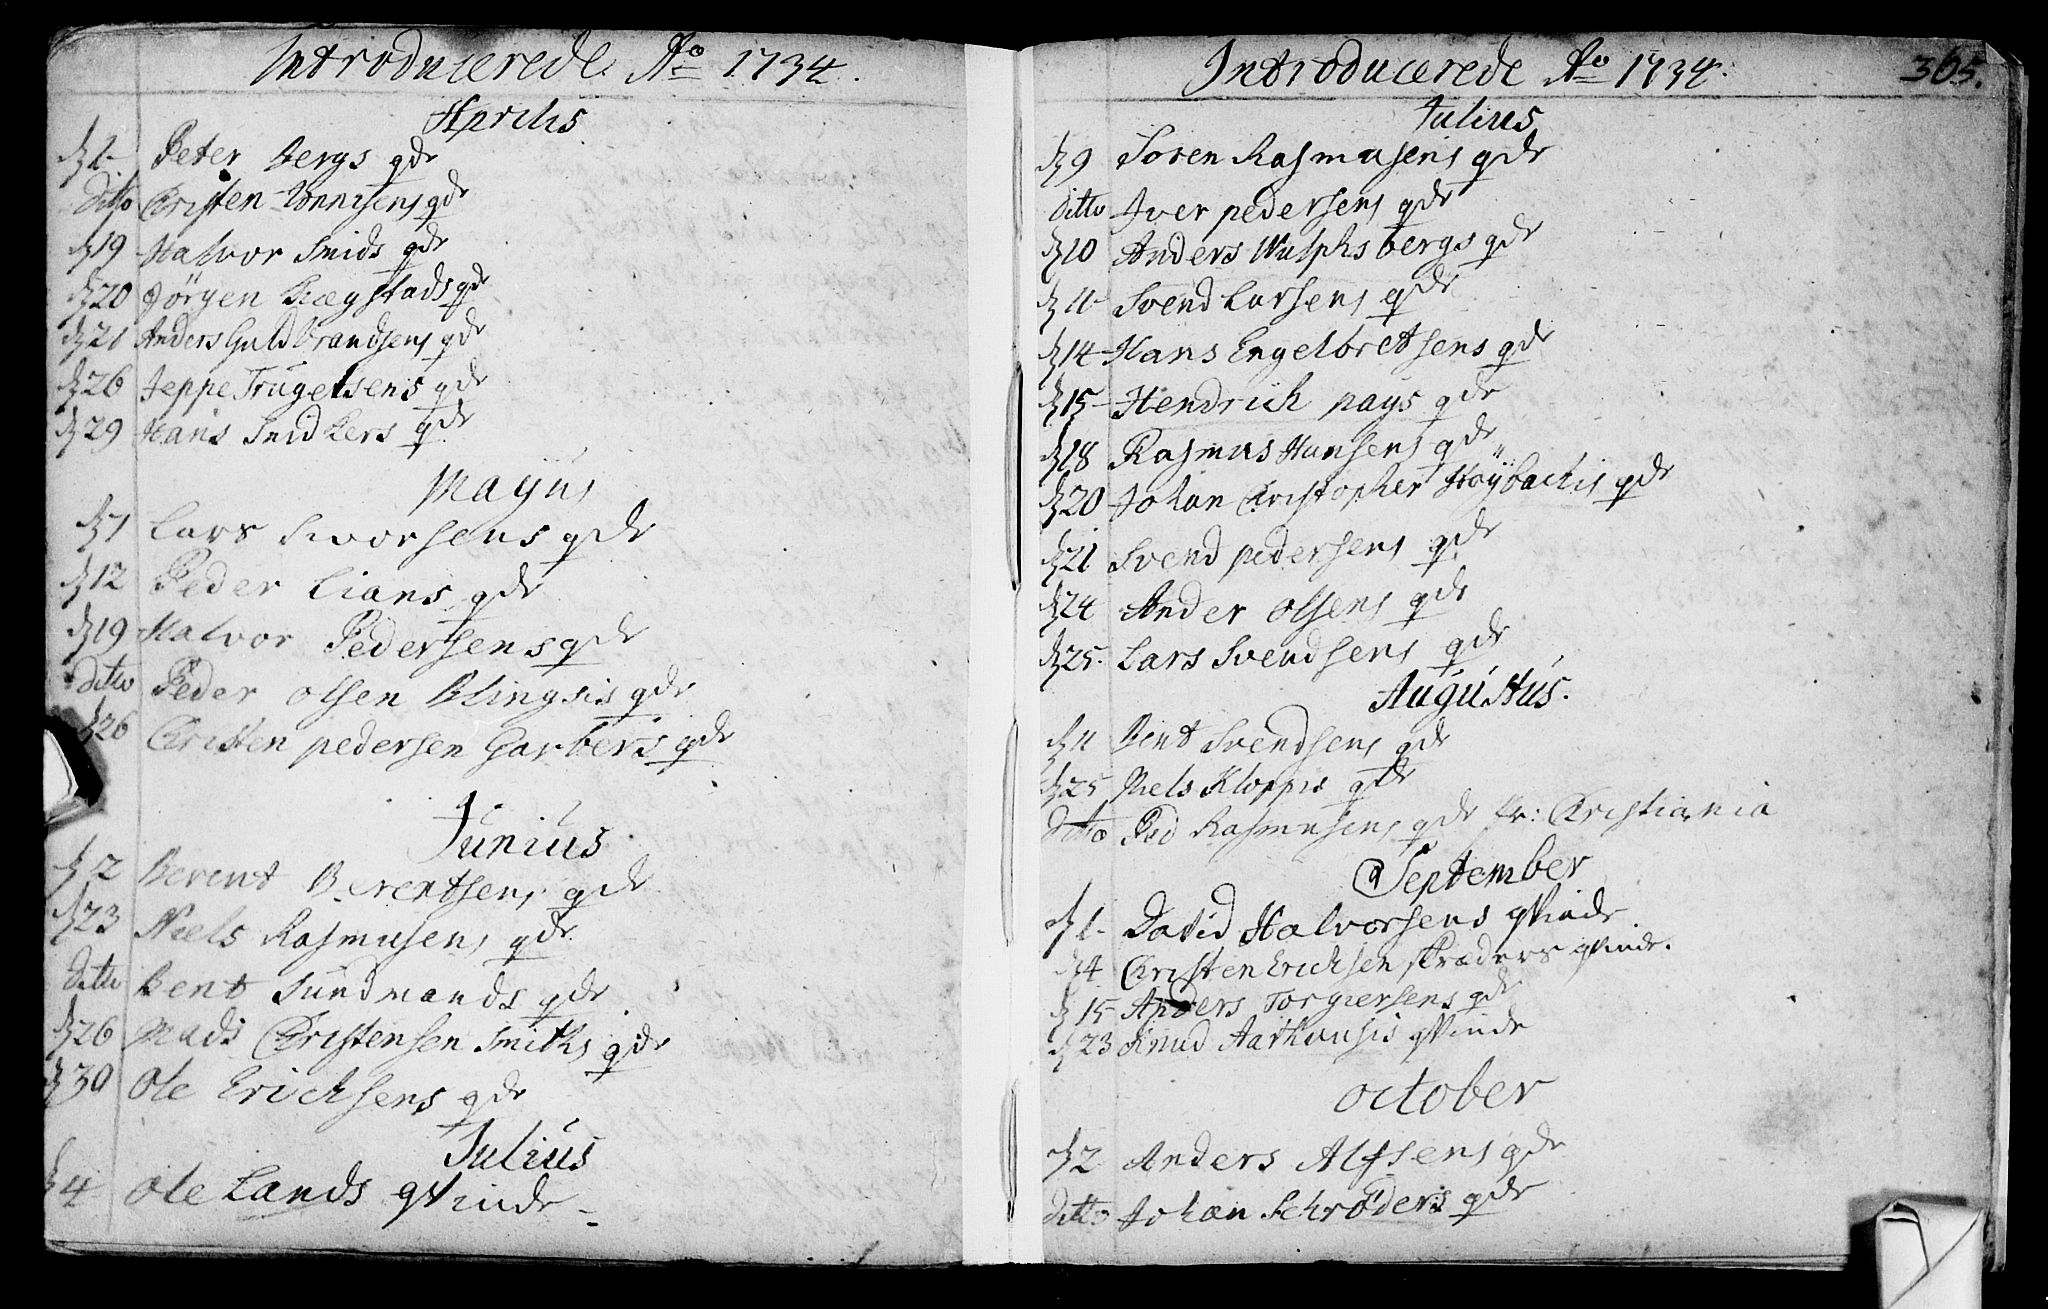 Introducerede Ao 1734.
Aprilis
d 1 Peter Bergs qde
ditto Christen Tønnisens qde
d 19 Halvor Smids qde
d 20 Jørgen Bragstads qde
d 21 Anders Guldbrandsens qde
d 26 Jeppe Trugelsens qde
d 29 Hans Snidkers qde
Mayus
d 1 Lars Siversens qde
d 12 Peder Lians qde
d 19 Halvor Pedersens qde
ditto Peder Olsen Blingsis qde
d 26 Christen pedersen Garbers qde
Junius
d 2 Berent Berentsens qde
d 23 Niels Rasmusens qde
ditto Bent Sundmands qde
d 26 Mads Christensen Smiths qde
d 30 Ole Ericksens qde
Julius
d 4 Ole Lands qvinde
Introducerede Ao 1734.
365.
Julius
d 9 Søren Rasmusens qde
ditto Iver pedersens qde
d 10 Anders Wulphsbergs qde
d 11 Svend Larsens qde
d 14 Hans Engelbretsens qde
d 15 Hendrich pays qde
d 18 Rasmus Hansens qde
d 20 Johan Christopher Høybachis qde
d 21 Svend pedersens qde
d 24 Ander Olsens qde
d 25. Lars Svendsens qde
Augustus.
d 4 Bent Svendsens qde
d 25 Niels Kloppis qde
ditto Ped Rasmusens qde fr: Christiania
September
d 1. David Halvorsens qvinde
d 4 Christen Ericksen skræders qvinde.
d 15 Anders Torgiersens qde
d 23 Knud Aarhusis qvinde
October
d 2 Anders Alfsens qde
ditto Johan Schrøders qde